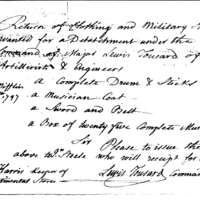 Return of Clothing and Military
wanted for a Detachment under the
Command of Major Lewis Tousard of
Artillerists & Engineers
a Complete Drum & Sticks
Mifflin
1797
a Musician Coat
a Sword and Belt
a Box of twenty five Complete Mus
Sir Please to issue the
above Mr. Steele who will receipt for
Harris Keeper of
Military Stores
Lewis Tousard Command